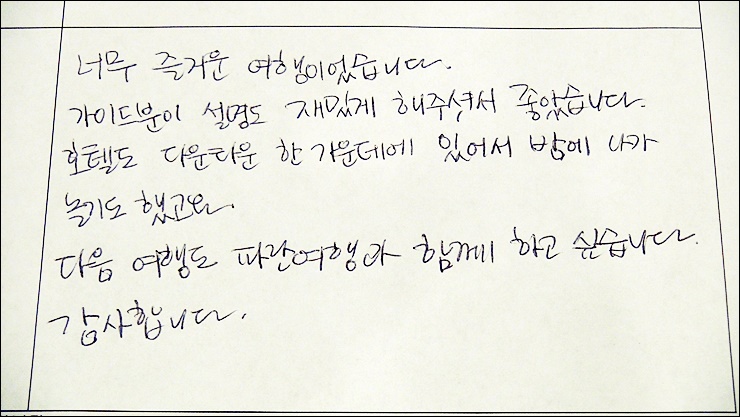 너무 즐거운 여행이었습니다.
가이드분이 설명도 재밌게 해주셔서 좋았습니다.
호텔도 다운타운 한 가운데에 있어서 밤에 나가
놀기도 했고요.
다음 여행도 파란여행과 함께 하고 싶습니다.
감사합니다.